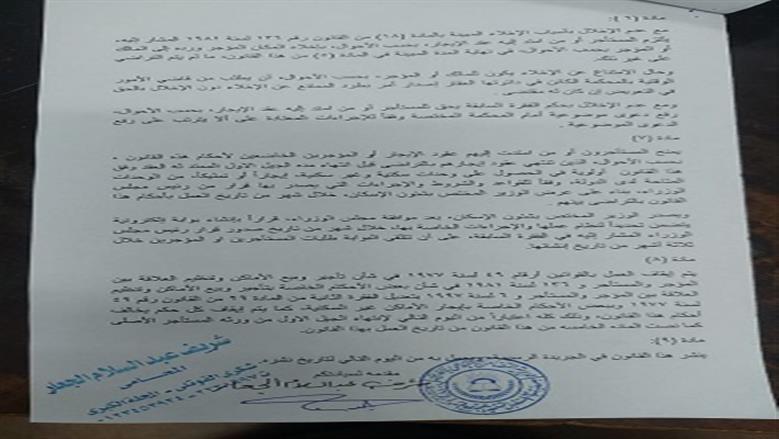 مادة (٦):
مع عدم الإخلال بأسباب الإخلاء المبينة بالمادة (١٨) من القانون رقم ١٣٦ لسنة ١٩٨١ المشار إليه،
يلتزم المستأجر أو من امتد إليه عقد الإيجار، بحسب الأحوال، بإخلاء المكان المؤجر ورده إلى المالك
أو المؤجر بحسب الأحوال، في نهاية المدة المبينة في المادة من هذا القانون، ما لم يتم التراضي
على غير ذلك.
وحال الامتناع عن الإخلاء يكون للمالك أو المؤجر، بحسب الأحوال، أن يطلب من قاضي الأمور
الوقتية بالمحكمة الكائن في دائرتها العقار إصدار أمر بطرد الممتنع عن الإخلاء دون الإخلال بالحق
في التعويض إن كان له مقتضى.
ومع عدم الإخلال بحكم الفقرة السابقة يحق للمستأجر أو من امتد إليه عقد الإيجار، بحسب الأحوال،
رفع دعوى موضوعية أمام المحكمة المختصة وفقاً للإجراءات المعتادة على ألا يترتب على رفع
الدعوى الموضوعية
مادة (٧)
يمنح المستأجرون أو من امتدت إليهم عقود الإيجار أو المؤجرين الخاضعين لأحكام هذا القانون ،
بحسب الأحوال، الذين تنتهي عقود إيجارهم بالتراضي قبل انتهاء الجيل الأول الممتد له العقد وفق
هذا القانون أولوية في الحصول على وحدات سكنية وغير سكنية، إيجاراً أو تمليكاً، من الوحدات
المتاحة لدى الدولة، وفقاً للقواعد والشروط والإجراءات التي يصدر بها قرار من رئيس مجلس
الوزراء، بناء على عرض الوزير المختص بشئون الإسكان، خلال شهر من تاريخ العمل بأحكام هذا
القانون بالتراضي بينهم .
ويصدر الوزير المختص بشئون الإسكان، بعد موافقة مجلس الوزراء، قراراً بإنشاء بوابة إلكترونية
يتضمن تحديداً لنظام عملها والإجراءات الخاصة بها، خلال شهر من تاريخ صدور قرار رئيس مجلس
الوزراء المشار إليه في الفقرة السابقة، على أن تتلقى البوابة طلبات المستأجرين أو المؤجرين خلال
ثلاثة أشهر من تاريخ إنشائها.
مادة (٨)
يتم إيقاف العمل بالقوانين أرقام ٤٩ لسنة ١٩٧٧ في شأن تأجير وبيع الأماكن وتنظيم العلاقة بين
المؤجر والمستأجر و ١٣٦ لسنة ١٩٨١ في شأن بعض الأحكام الخاصة بتأجير وبيع الأماكن وتنظيم
العلاقة بين المؤجر والمستأجر و ٦ لسنة ١٩٩٧ بتعديل الفقرة الثانية من المادة ٢٩ من القانون رقم ٤٩
لسنة ١٩٧٧ وببعض الأحكام الخاصة بإيجار الأماكن غير السكنية، كما يتم إيقاف كل حكم يخالف
أحكام هذا القانون، وذلك كله اعتباراً من اليوم التالي لإنتهاء الجيل الأول من ورثة المستأجر الأصلى
كما نصت الماده الخامسه من هذا القانون من تاريخ العمل بهذا القانون.
مادة (٩):
ينشر هذا القانون في الجريدة الرسمية، ويعمل به من اليوم التالي لتاريخ نشره.
مقدمه لسيادتكم
شريف عبد السلام الجعار
شريف عبد السلام الجعار
المحامى
شكرى القوتلى - المحلة الكبرى